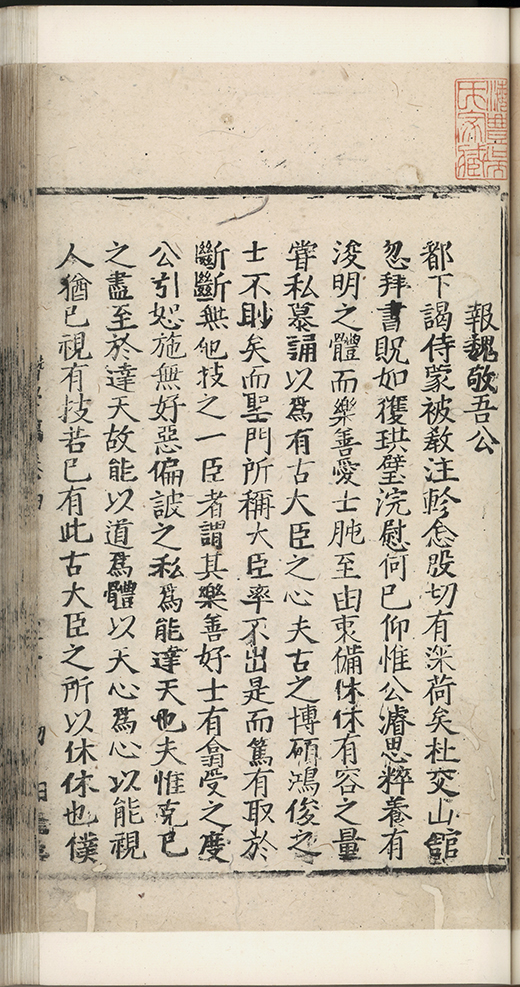 報魏敬吾公
都下謁侍蒙被教注軫念殷切有深荷矣杜交山館
忽拜書貺如獲珙璧浣慰何已仰惟公濬思粹養有
浚明之體而樂善愛士肫至由衷備休休有容之量
甞私慕誦以為有古大臣之心夫古之博碩鴻俊之
士不尠矣而聖門所稱大臣率不出是而篤有取於
斷斷無他技之一臣者謂其樂善好士有翕受之度
公引恕施無好惡偏詖之私為能達天也夫惟克已
之盡至於達天故能以道為體以天心為心以能視
人猶已視有技若已有此古大臣之所以休休也僕